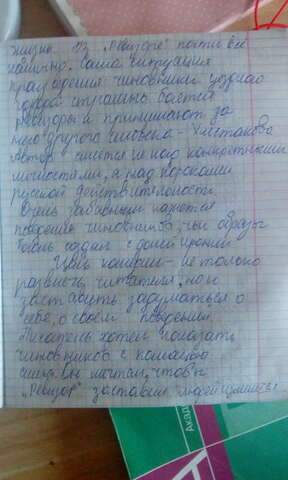 жизнь. Из „Ревизоре" почти все
комично. Сама ситуация
комедии чиновники уездного
города страшно боятся
ревизора и принимают за
него другого человека - Хлестакова
Автор смеётся не над конкретными
личностями, а над пороками
русской действительности.
Очень забавным кажется
поведение чиновников, чьи образы
Гоголь создал с долей иронии
Цель комедии - не только
развлечь читателя, но и
заставить задуматься о
себе, о своем поведении.
Писатель хотел показать
чиновников с помощью
смеха он мечтал, чтобы
„Ревизор" заставил людей измениться
Акад